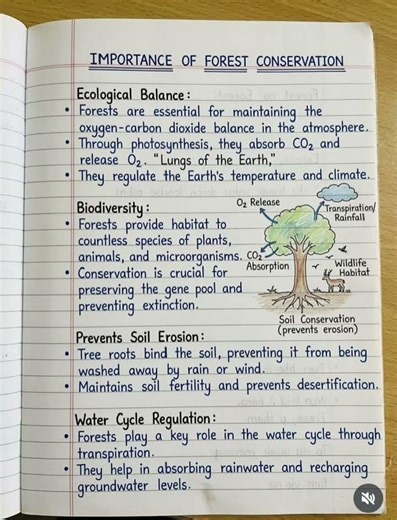 IMPORTANCE OF FOREST CONSERVATION
Ecological Balance:
• Forests are essential for maintaining the
oxygen-carbon dioxide balance in the atmosphere.
• Through photosynthesis, they absorb CO₂ and
release O₂. "Lungs of the Earth,"
• They regulate the Earth's temperature and climate.
Biodiversity:
• Forests provide habitat to
countless species of plants,
animals, and microorganisms.
• Conservation is crucial for
preserving the gene pool and
preventing extinction.
O₂ Release
Transpiration/
Rainfall
CO₂
Absorption
Wildlife
Habitat
Soil Conservation
(prevents erosion)
Prevents Soil Erosion:
• Tree roots bind the soil, preventing it from being
washed away by rain or wind.
• Maintains soil fertility and prevents desertification.
Water Cycle Regulation:
• Forests play a key role in the water cycle through
transpiration.
• They help in absorbing rainwater and recharging
groundwater levels.